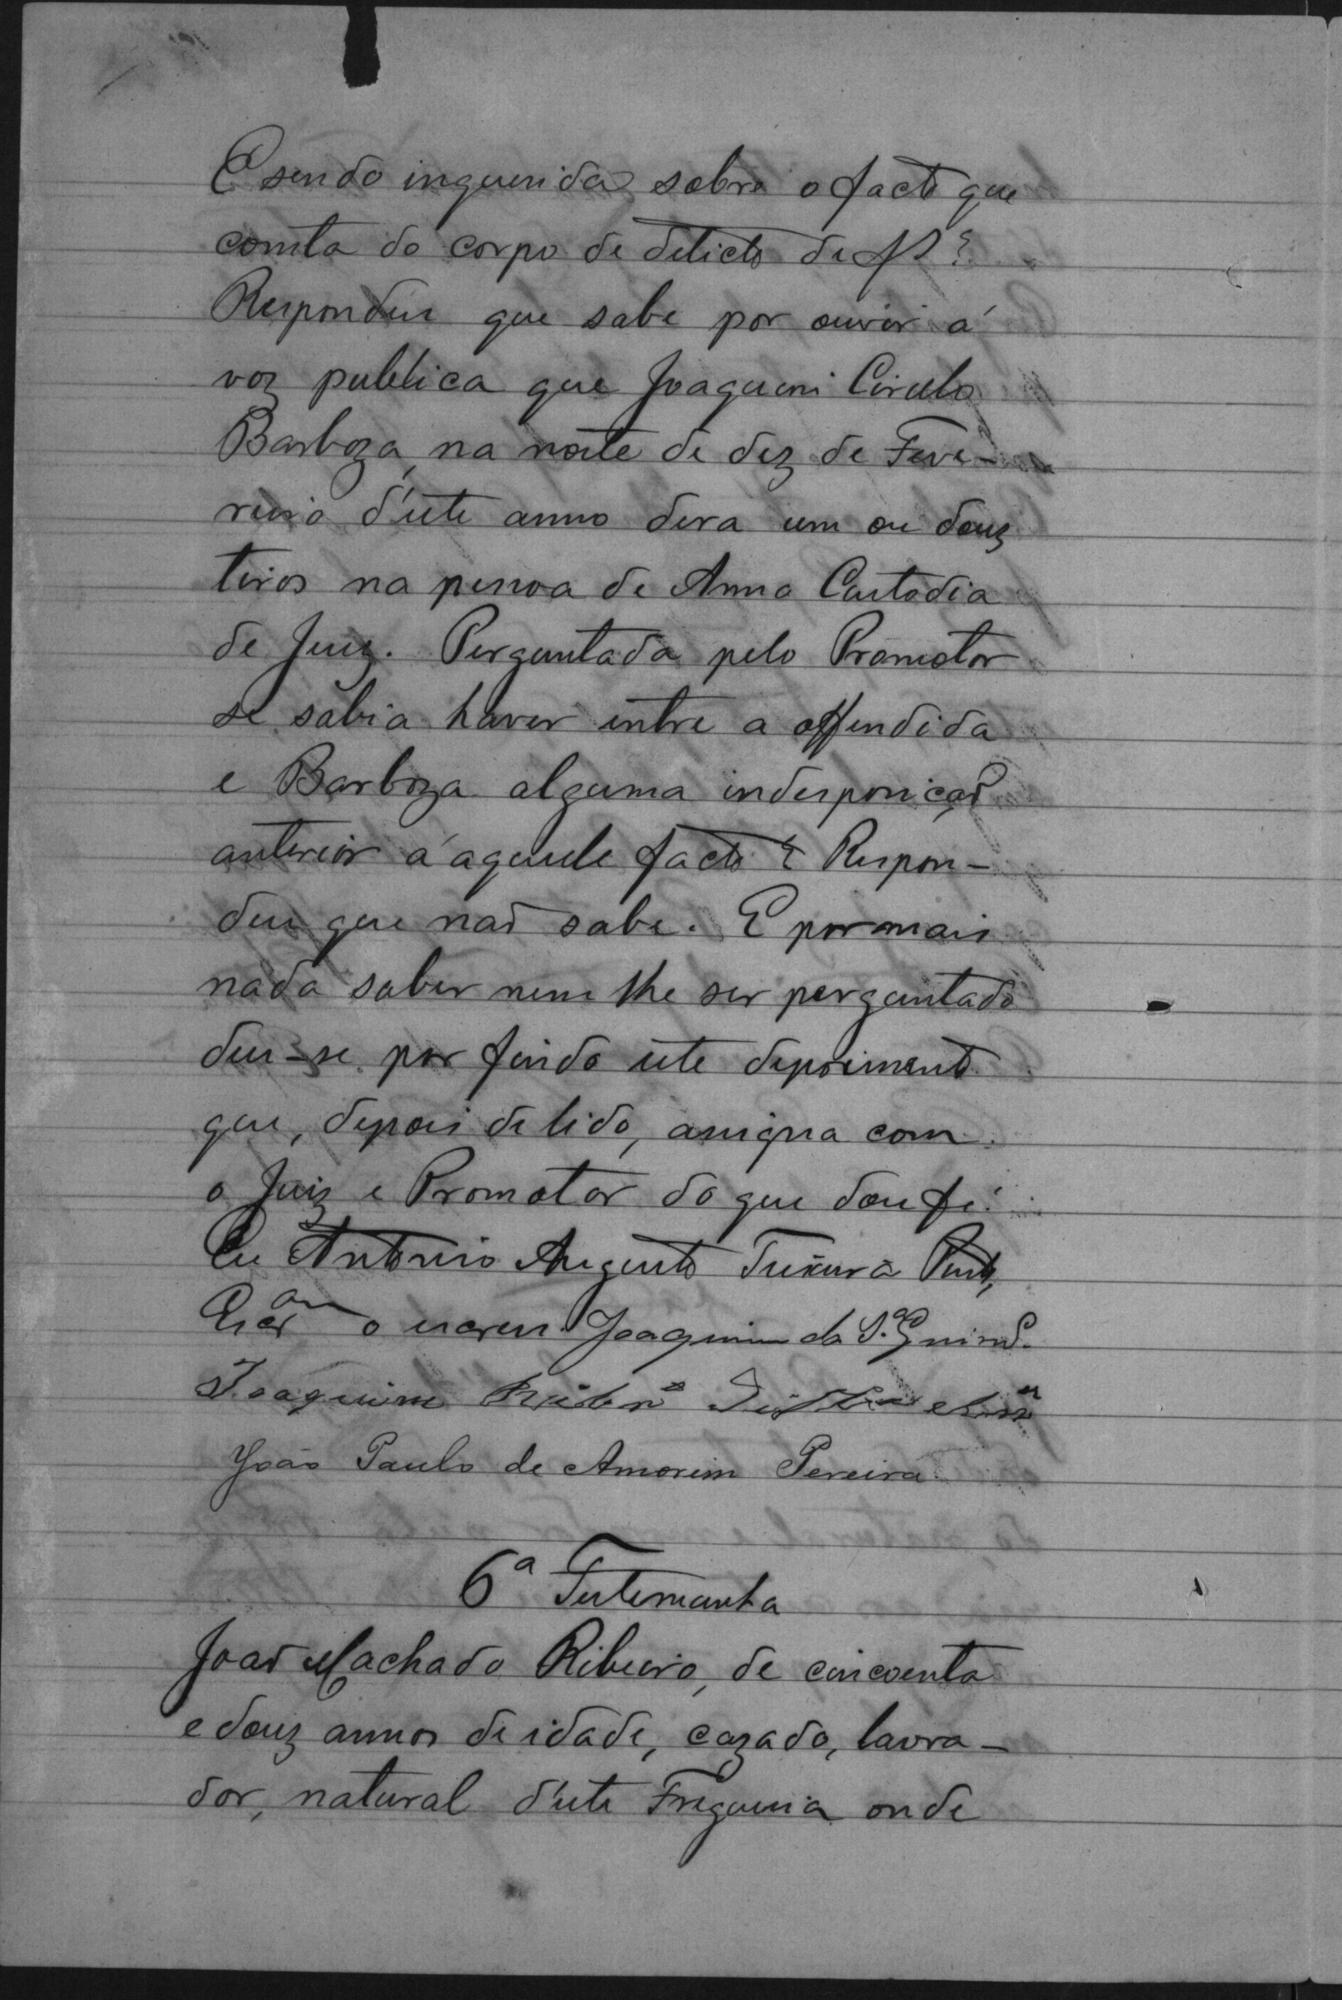 E sendo inquerida sobre o facto que
consta do corpo de delicto de f?
Respondeu que sabe por ouvir á
voz publica que Joaquim Cirulo
Barboza, na noite de dez de Feve-
reiro d'este anno dera um ou douz
tiros na pessoa de Anna Custodia
de Juiz. Perguntada pelo Promotor
se sabia haver entre a offendida
e Barboza alguma indesposiçaõ
anterior á aquelle facto? Respon-
deu que naõ sabe. E por mais
nada saber nem lhe ser perguntado
deu-se por findo este depoimento
que, depois de lido, assigna com
o Juiz e Promotor do que dou fé.
Eu Antonio Augusto Teixeira Pinto,
Escam o escrevi. Joaquim da S.ª Guimes.
Joaquim
João Paulo de Amorim Pereira
6ª Testemunha
Joaõ Machado Ribeiro, de cincoenta
e douz annos de idade, cazado, lavra-
dor, natural d'esta Freguesia onde